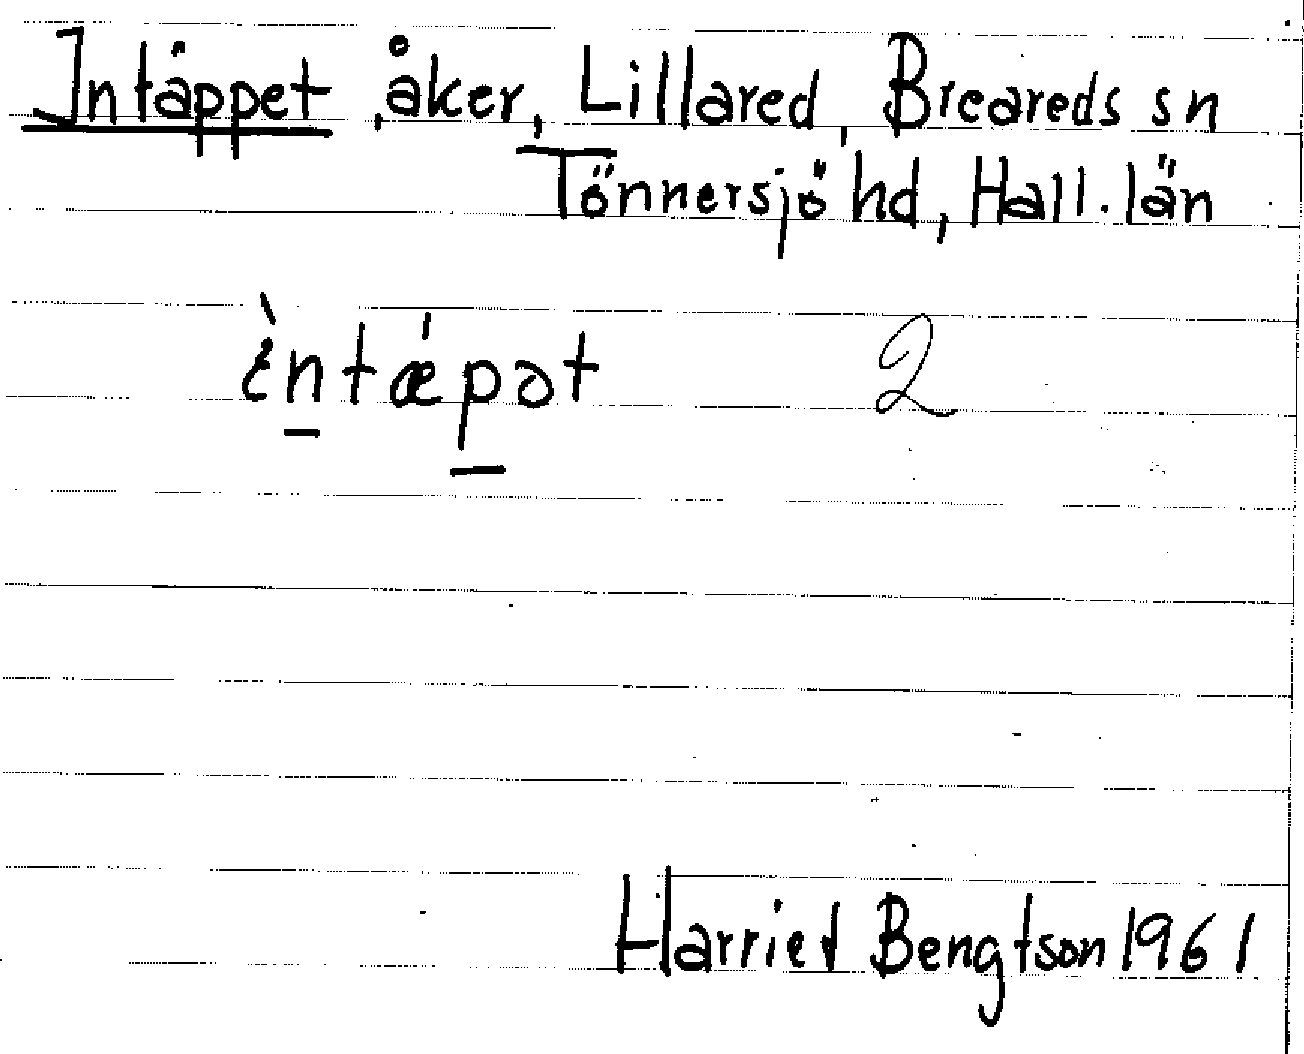 Intäppet, åker, Lillared, Breareds sn
Tönnersjö hd, Hall. län
ìntǽpət 2
Harriet Bengtson 1961